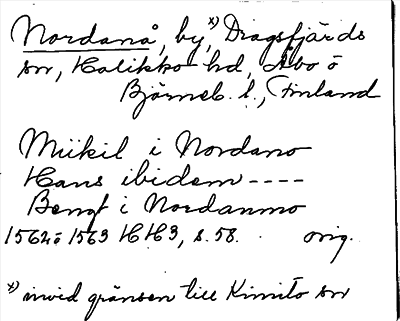 Nordanå, by,ˣ⁾ Dragsfjärds
sn, Halikko hd, Åbo o
Björneb. l., Finland
Miikil i Nordano
Hans ibidem ----
Bengt i Nordanmo
1562 o 1563 HH3, s. 58. orig.
ˣ⁾ invid gränsen till Kimito sn